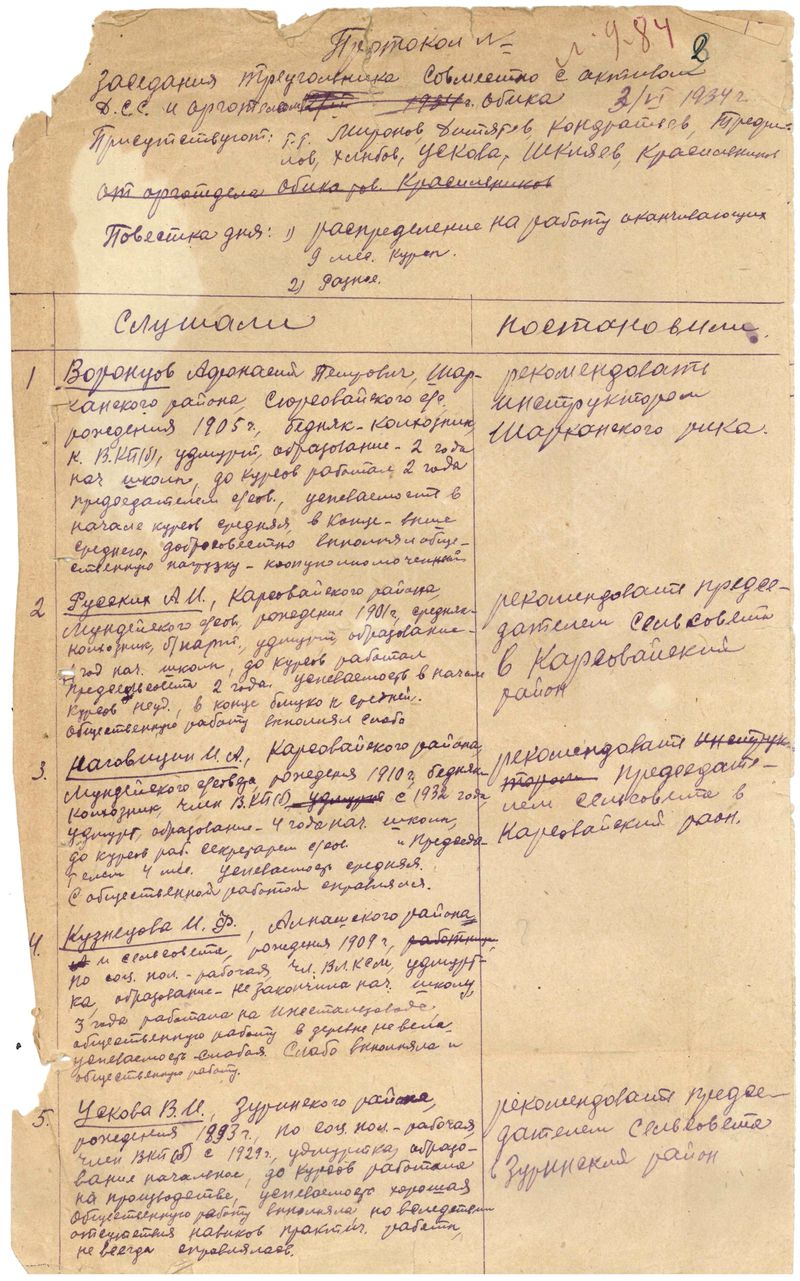 Протокол №
л. 9-84 2
заседания треугольника совместно с активом
Д.С.С. и орготдела обика 3/VI 1934 г.
Присутствуют: т.т. Миронов, Дитятев, Кондратьев,
лов, Хлыбов, Ускова, Шкляев, Красильников
от орготдела обика тов. Красильников
Повестка дня: 1) распределение на работу оканчивающих
9 мес. курсы.
2) Разное.
Слушали
Постановили
1 Воронцов Афанасий Петрович, Шар-
канского района, Сюрсовайского с/с,
рождения 1905 г., бедняк-колхозник,
к. ВКП(б), удмурт, образование - 2 года
нач. школы, до курсов работал 2 года
председателем с/сов., успеваемость в
начале курсов средняя, в конце - выше
среднего, добросовестно выполнял обще-
ственную нагрузку - коопуполномоченный
рекомендовать
инструктором
Шарканского рика.
2 Русских А.И., Карсовайского района,
Мундейского с/сов, рождение 1901 г, средняк-
колхозник, б/парт, удмурт, образование -
1 год нач. школы, до курсов работал
предсельсовета 2 года. успеваемость в начале
курсов неуд., в конце близко к средней.
общественную работу выполнял слабо
рекомендовать предсе-
дателем сельсовета
в Карсовайский
район
3. Наговицин И. А., Карсовайского района,
Мундейского с/совета, рождения 1910 г, бедняк-
колхозник, член ВКП(б) удмурт с 1932 года
удмурт, образование - 4 года нач. школы,
до курсов раб. секретарем с/сов. и Предсе-
телем 4 мес. успеваемость средняя.
С общественной работой справлялся.
рекомендовать инструк-
тором председате-
лем сельсовета в
Карсовайский район.
4. Кузнецова М. Ф., Алнашского района
и сельсовета, рождения 1909 г,
по соц. пол. - рабочая, чл. ВЛКСМ, удмурт-
ка, образование - не закончила нач. школу,
3 года работала на Ижстальзаводе,
общественную работу в деревне не вела.
успеваемость слабая. Слабо выполняла и
общественную работу.
5. Ускова В.И., Зуринского района,
рождения 1893 г., по соц. пол. - рабочая,
член ВКП(б) с 1929 г., удмуртка, образо-
вание начальное, до курсов работала
на производстве, успеваемость хорошая
Общественную работу выполняла но вследствии
отсутствия навиков практич. работы,
не всегда справлялась.
рекомендовать предсе-
дателем сельсовета
в Зуринский район